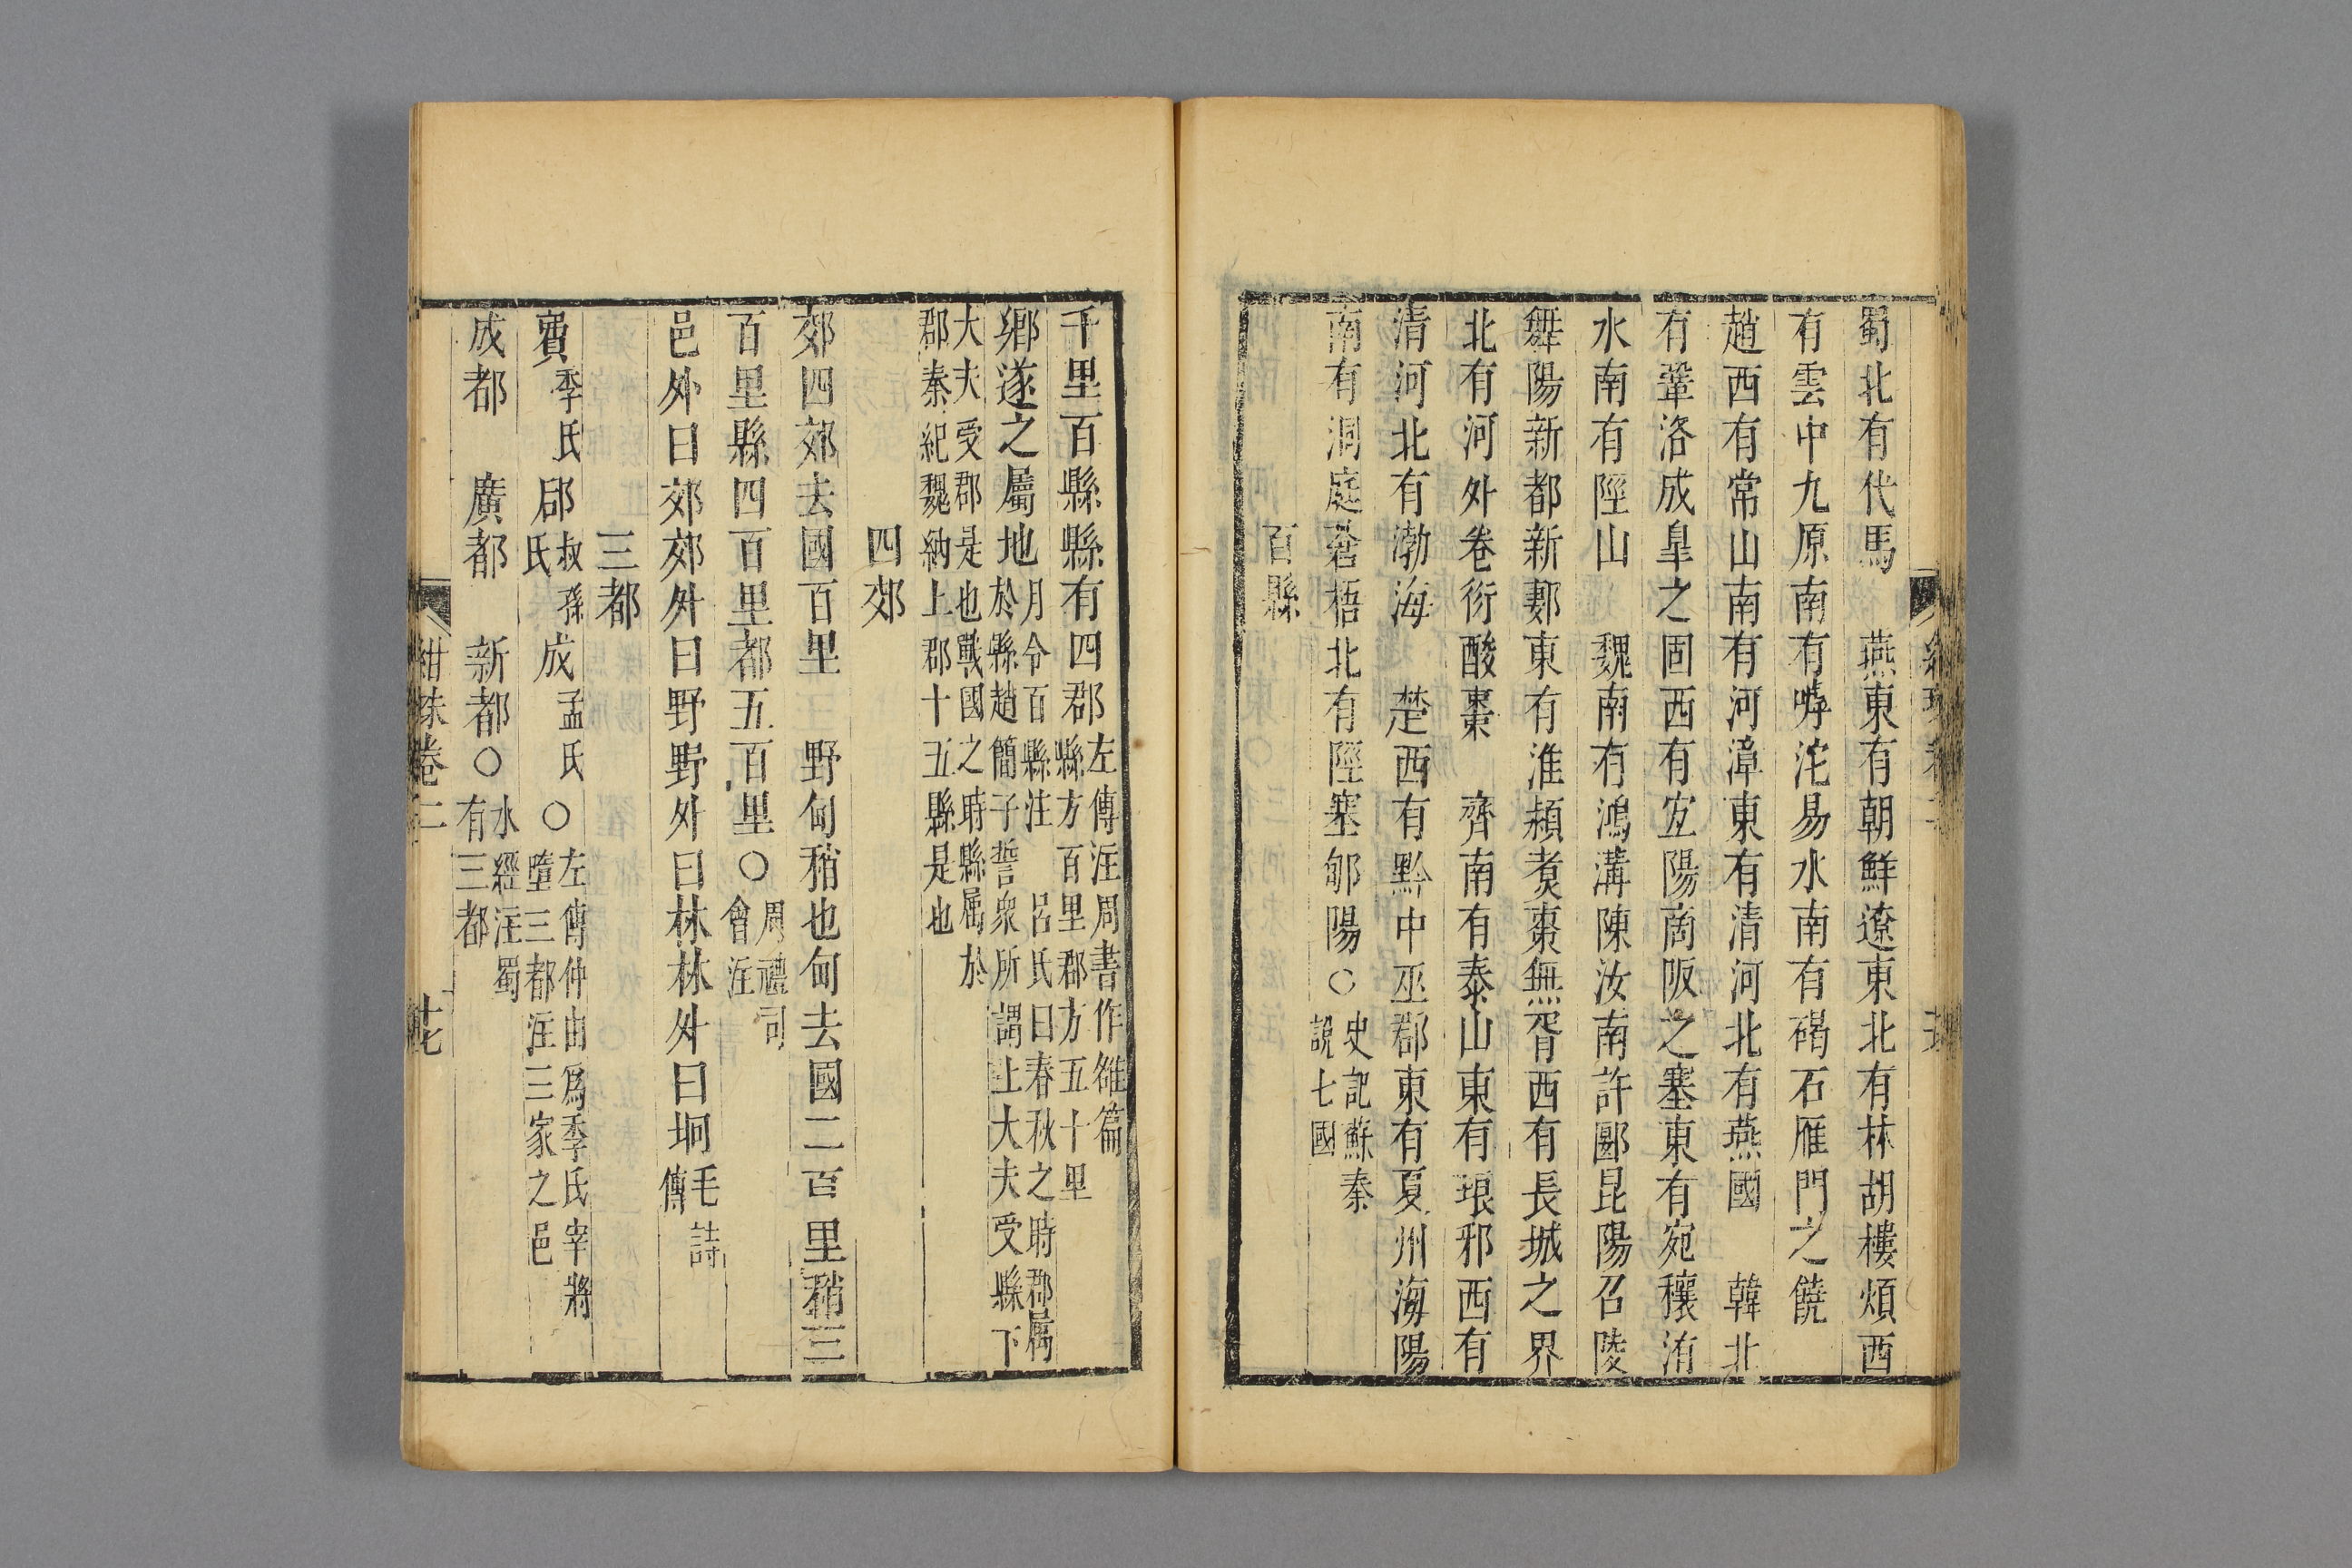 蜀北有代馬　燕東有朝鮮遼東北有林胡樓煩西
有雲中九原南有嘑沱易水南有碣石雁門之饒
趙西有常山南有河漳東有清河北有燕國　韓北
有鞏洛成臯之固西有宜陽啇阪之塞東有宛穰洧
水南有陘山　魏南有鴻溝陳汝南許郾昆陽召陵
舞陽新都新郪東有淮潁煑棗無胥西有長城之界
北有河外卷衍酸棗　齊南有泰山東有琅邪西有
清河北有渤海　楚西有黔中巫郡東有夏州海陽
南有洞庭蒼梧北有陘塞郇陽〇史記蘇秦
說七國
百縣
千里百縣縣有四郡左傳注周書作雒篇
縣方百里郡方五十里
鄕遂之屬地月令百縣注　呂氏曰春秋之時郡屬
於縣趙簡子誓衆所謂上大夫受縣下
大夫受郡是也戰國之時縣屬於
郡秦紀魏納上郡十五縣是也
四郊
郊四郊去國百里　野甸稍也甸去國二百里稍三
百里縣四百里都五百里〇周禮司
會注
邑外曰郊郊外曰野野外曰林林外曰坰毛詩
傳
三都
費季氏郈叔孫
氏成孟氏〇左傳仲由爲季氏宰將
墮三都注三家之邑
成都　廣都　新都〇水經注蜀
有三都
紺珠卷二